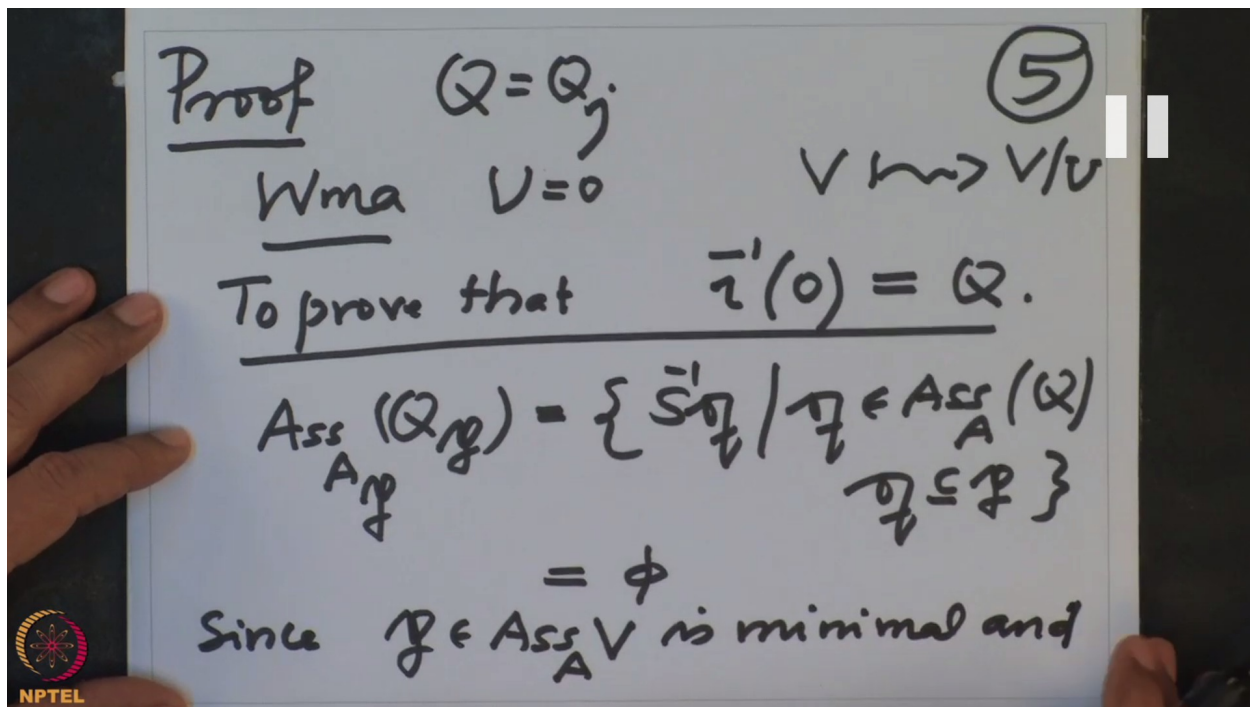 Proof Q = Q_j ⑤
Wma U = 0 V ⇝ V/U
To prove that ι^{-1}(0) = Q.
Ass_{A_𝔭}(Q_𝔭) = { S^{-1}𝔮 | 𝔮 ∈ Ass_A(Q)
𝔮 ⊆ 𝔭 }
= ϕ
Since 𝔭 ∈ Ass_A V is minimal and
NPTEL